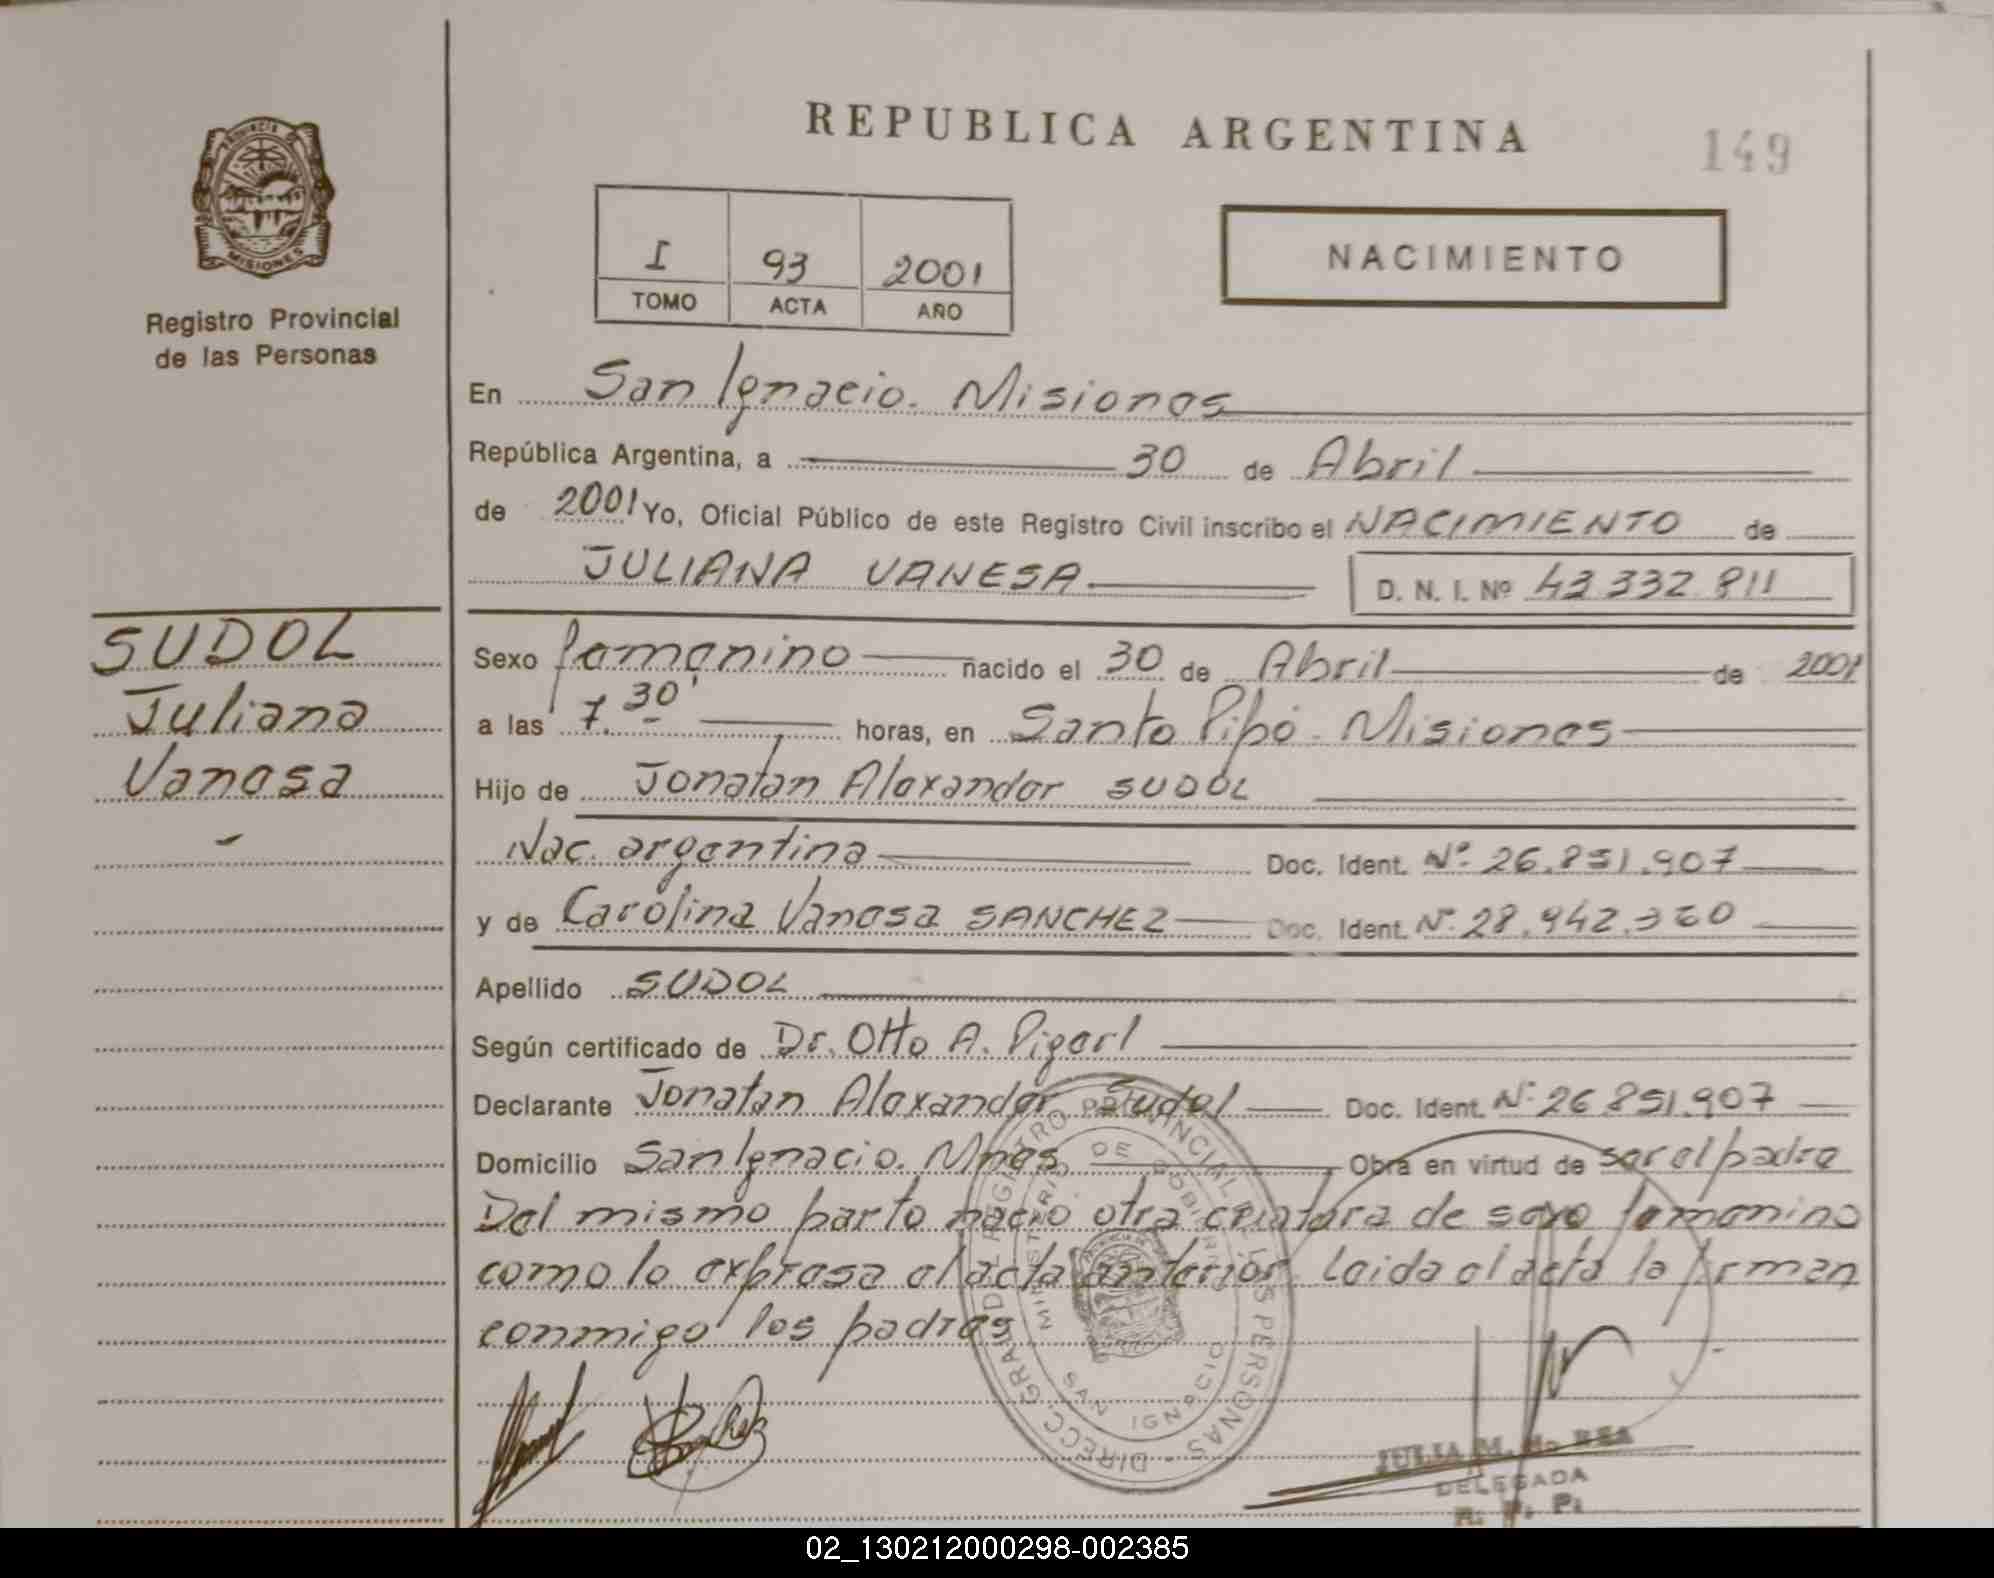 REPUBLICA ARGENTINA
149
PROVINCIA DE
MISIONES
Registro Provincial
de las Personas
I 93 2001
TOMO ACTA AÑO
NACIMIENTO
En San Ignacio. Misiones
República Argentina, a 30 de Abril
de 2001 Yo, Oficial Público de este Registro Civil inscribo el NACIMIENTO de
JULIANA VANESA D. N. I. Nº 43.332.811
SUDOL
Juliana
Vanesa
Sexo femenino nacido el 30 de Abril de 2001
a las 7.30' horas, en Santo Pipó. Misiones
Hijo de Jonatan Alexander SUDOL
Nac. argentina Doc. Ident. Nº 26.851.907
y de Carolina Vanesa SANCHEZ Doc. Ident. Nº 28.942.360
Apellido SUDOL
Según certificado de Dr. Otto A.
Declarante Jonatan Alexander Sudol Doc. Ident. Nº 26851.907
Domicilio San Ignacio. Mnes Obra en virtud de ser el padre
Del mismo parto nacio otra criatura de sexo femenino
como lo expresa el acta anterior. Leida el acta la firman
conmigo los padres
DIRECC. GRAL. DEL REGISTRO PROVINCIAL DE LAS PERSONAS
MINISTERIO DE GOBIERNO
SAN IGNACIO
JULIA M.
DELEGADA
R. P. P.
02_130212000298-002385